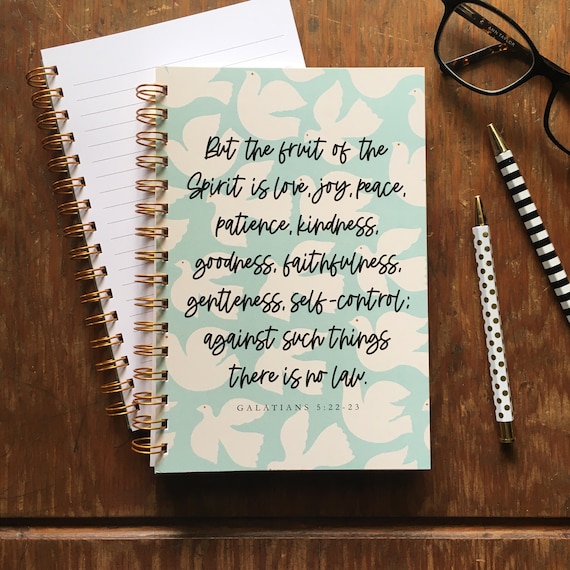 But the fruit of the
Spirit is love, joy, peace,
patience, kindness,
goodness, faithfulness,
gentleness, self-control;
against such things
there is no law.
GALATIANS 5:22-23